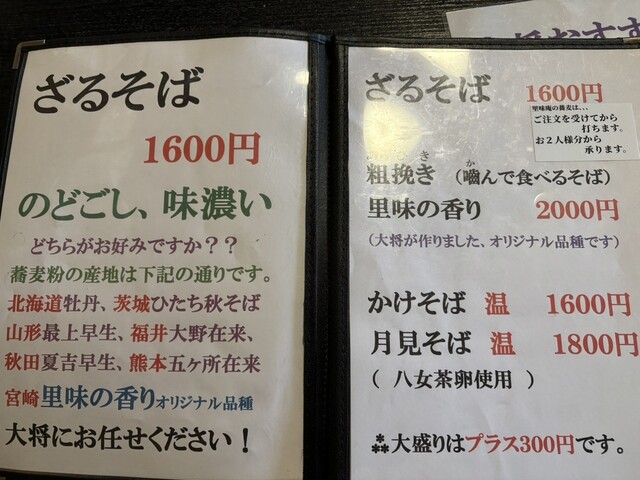 ざるそば
1600円
のどごし、味濃い
どちらがお好みですか？？
蕎麦粉の産地は下記の通りです。
北海道牡丹、茨城ひたち秋そば
山形最上早生、福井大野在来、
秋田夏吉早生、熊本五ヶ所在来
宮崎里味の香りオリジナル品種
大将にお任せください！
ざるそば 1600円
里味庵の蕎麦は…
ご注文を受けてから
打ちます。
お２人様分から
承ります。
粗挽き（嚙んで食べるそば）
里味の香り 2000円
（大将が作りました、オリジナル品種です）
かけそば 温 1600円
月見そば 温 1800円
（ 八女茶卵使用 ）
⁂大盛りはプラス300円です。